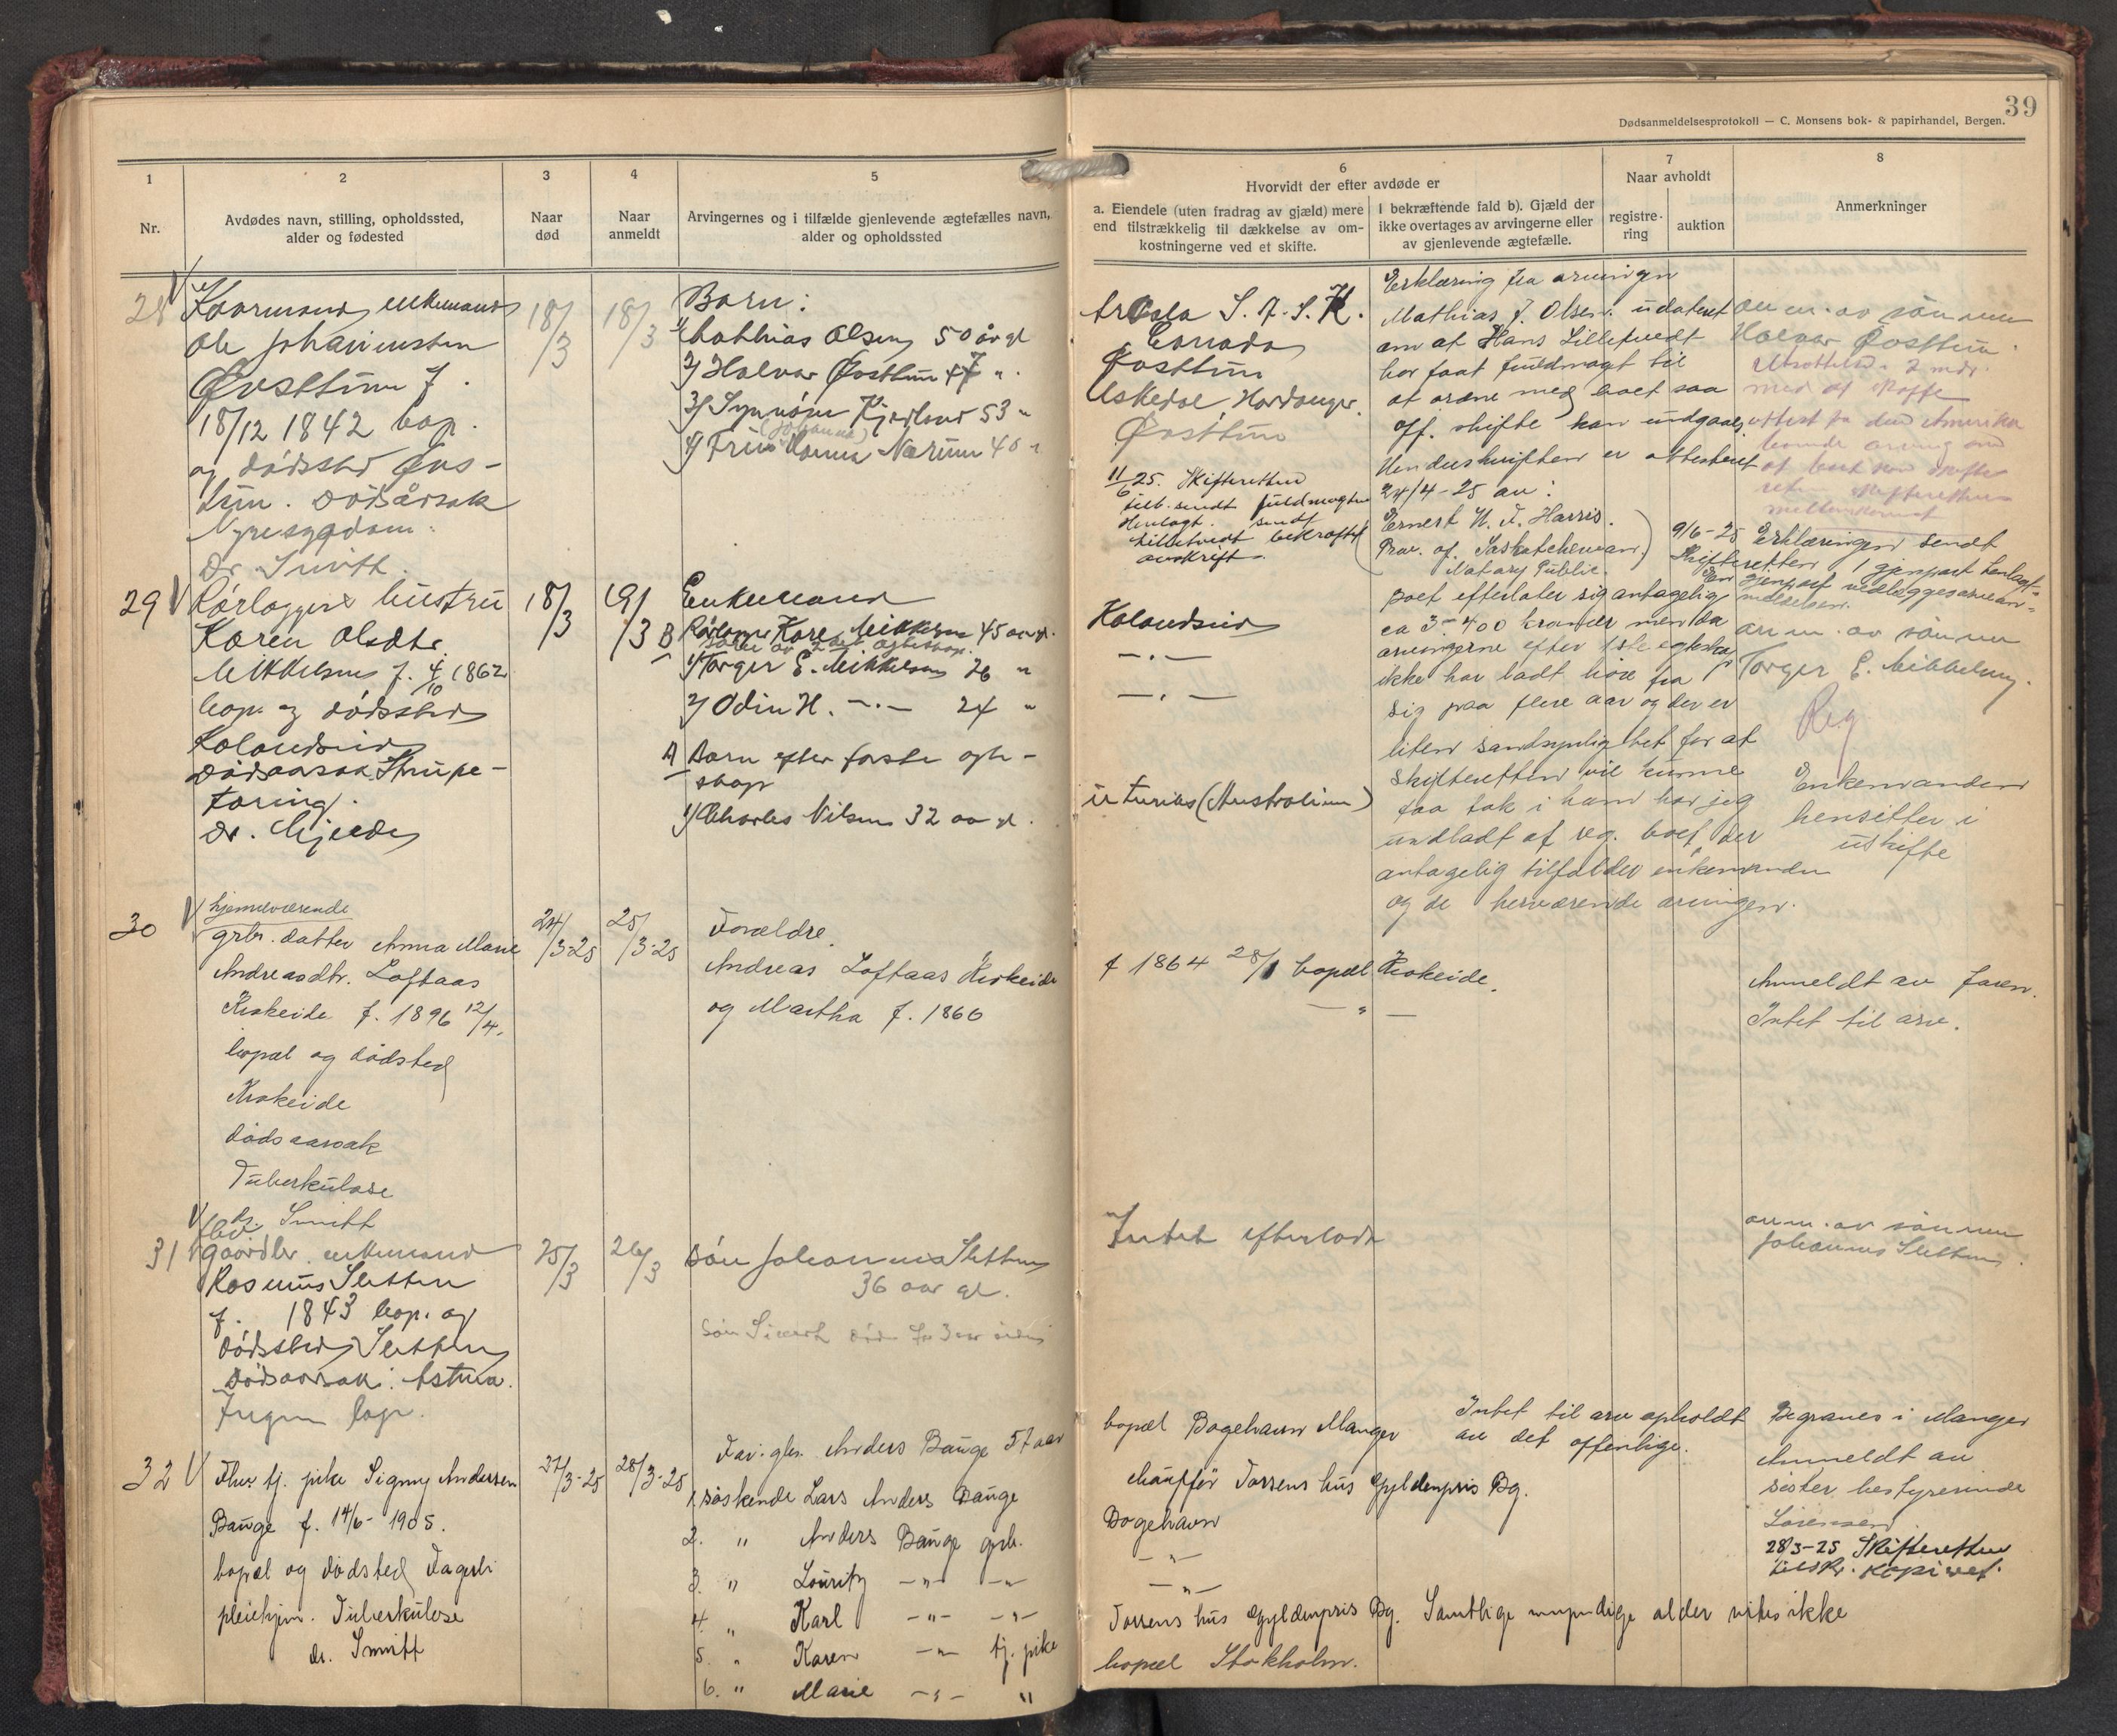 39
Dødsanmeldelsesprotokoll — C. Monsens bok- & papirhandel, Bergen.
1
2
3
4
5
Nr.
Avdødes navn, stilling, opholdssted,
alder og fødested
Naar
død
Naar
anmeldt
Arvingernes og i tilfælde gjenlevende ægtefælles navn,
alder og opholdssted
6
Hvorvidt der efter avdøde er
a. Eiendele (uten fradrag av gjæld) mere
end tilstrækkelig til dækkelse av om-
kostningerne ved et skifte.
I bekræftende fald b). Gjæld der
ikke overtages av arvingerne eller
av gjenlevende ægtefælle.
7
Naar avholdt
registre-
ring
auktion
8
Anmerkninger
28
enkemand
Ole Johannessen
Øvsttun f.
18/12 1842 bop.
og dødssted Øvs-
tun. Dødsårsak
Nyresygdom.
Dr. Smitt.
18/3
18/3
Barn:
1/ Mathias Olsen 50 år gl
2/ Halvor Øvsttun 47 "
3/ Synnøve Kjerland 53 "
(Johanna)
4/ Fru Hanna Nærum 40 "
Arcola S. A. S. K.
Canada
Øvsttun
Øvsttun
11/6 25. Skifteretten
tilb. sendt fuldmagten
Henlagt. sendt
Lilletvedt bekræftet
avskrift.
Erklæring fra arvingen
Mathias J. Olsen. udateret
om at Hans Lilletvedt
har faat fuldmagt til
at ordne med boet saa
off. skifte kan undgaaes.
Underskriften er attesteret
24/4-25 av:
Ernest W. F. Harris.
(Prov. of. Saskatchewan.)
Notary Public.
anm. av sønnen
Halvor Øvsttun.
Utsættelse 2 mdr.
med at skaffe
attest fra den i Amerika
boende arving om
at boet kan skifte
uten skifterettens
mellemkomst
9/6-25 Erklæringen sendt
Skifteretten 1 gjenpart henlagt.
En gjenpart vedlægges anmeldelsen.
29
Rørlægger hustru
Karen Olsdtr.
Mikkelsen f. 4/10 1862
bop. og dødssted
Kolandsvid
Dødsaarsak. Strupe-
tæring.
Dr. Mjelde
18/3
19/3
Enkemand
B
Rørlægger Kare Mikkelsen 45 aar gl.
barn av 2det ægteskap.
1/ Torger E. Mikkelsen 26 "
2/ Odin H. -.- 24 "
A Barn efter første egte-
skap
1/ Charles Nilsen 32 aar gl.
Kolandsvid
-.-
-.-
(Australien)
Boet efterlater sig antagelig
ca 3-400 kroner men da
arvingerne efter 1ste egteskap
ikke har ladt høre fra
sig paa flere aar og der er
liten sandsynlighet for at
skifteretten vil kunne
faa tak i ham har jeg
undladt at reg. boet, der
antagelig tilfalder enkemanden
og de herværende arvinger.
anm. av sønnen
Torger E. Mikkelsen.
Reg
Enkemanden
hensitter i
uskifte
30
hjemmeværende
grbr. datter Anna Marie
Andreasdtr. Loftaas
Krokeide f. 1896 12/4.
bopæl og dødsted
Krokeide
dødsaarsak
Tuberkulose
dr. Smitt
24/3-25
25/3-25
Forældre.
Andreas Loftaas Krokeide
og Martha f. 1860
f 1864 28/1 bopæl Krokeide.
— " —
Anmeldt av faren.
Intet til arv.
31
fhv.
gaardbr. enkemand
Rasmus Sletten
f. 1843 bop. og
dødssted Sletten
Dødsaarsak: Astma.
Ingen læge.
25/3
26/3
søn Johannes Sletten
36 aar gl.
søn Sivert død for 3 aar siden
Intet efterladt
anm. av sønnen
Johannes Sletten.
32
Fhv. tj. pike Signy Andersen
Bauge f. 14/6- 1905.
bopæl og dødsted Fagerli
pleiehjem. Tuberkulose
dr. Smitt
27/3-25
28/3-25
Far. gbr. Anders Bauge 57 aar
1. søskende Lars Anders Bauge
2. " Anders Bauge grb.
3. " Lauritz -"- -"-
4. " Karl -"- -"-
5. " Karen -"- tj. pike
6. " Marie -"- "
bopæl Bøgehavn Manger
chauffør Torsens hus Gyldenpris Bg.
Bøgehavn
-"-
-"-
Torsens hus Gyldenpris Bg. Samtlige myndige alder vites ikke
bopæl Stokholm.
Intet til arv opholdt
av det offentlige.
Begraves i Manger
Anmeldt av
søster, bestyrerinde
Sørensen
28/3-25 Skifteretten
tilskr. Kopi vet.